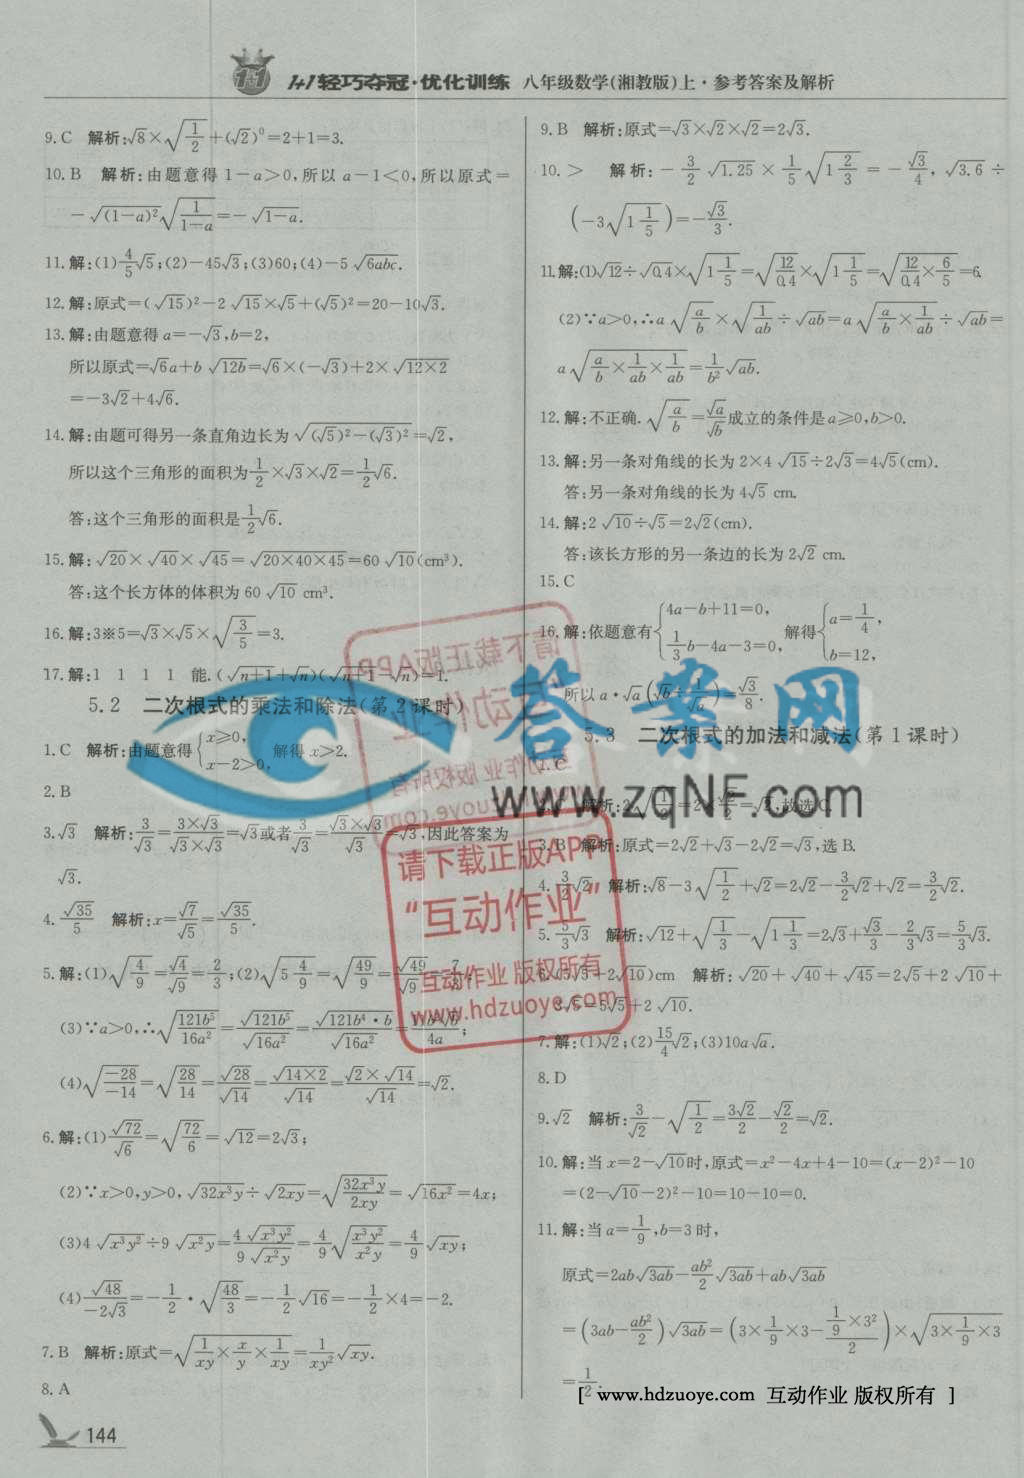 1+1轻巧夺冠·优化训练 八年级数学(湘教版)上·参考答案及解析
9.C 解析:√8×√(1/2)+(√2)⁰=2+1=3.
10.B 解析:由题意得1-a>0,所以a-1<0,所以原式=
-√((1-a)²)√(1/(1-a))=-√(1-a).
11.解:(1)4/5√5;(2)-45√3;(3)60;(4)-5√(6abc).
12.解:原式=(√15)²-2√15×√5+(√5)²=20-10√3.
13.解:由题意得a=-√3,b=2,
所以原式=√6a+b√(12b)=√6×(-√3)+2×√(12×2)
=-3√2+4√6.
14.解:由题可得另一条直角边长为√((√5)²-(√3)²)=√2,
所以这个三角形的面积为1/2×√3×√2=1/2√6.
答:这个三角形的面积是1/2√6.
15.解:√20×√40×√45=√(20×40×45)=60√10(cm³).
答:这个长方体的体积为60√10 cm³.
16.解:3※5=√3×√5×√(3/5)=3.
17.解:1 1 1 1 能.(√(n+1)+√n)(√(n+1)-√n)=1.
5.2 二次根式的乘法和除法(第2课时)
1.C 解析:由题意得{x≥0, x-2>0, 解得x>2.
2.B
3.√3 解析:3/√3=(3×√3)/(√3×√3)=√3或者3/√3=(√3×√3)/√3=√3,因此答案为
√3.
4.√35/5 解析:x=√7/√5=√35/5.
5.解:(1)√(4/9)=√4/√9=2/3;(2)√(5 4/9)=√(49/9)=√49/√9=7/3;
(3)∵a>0,∴√(121b⁵/16a²)=√(121b⁵)/√(16a²)=√(121b⁴·b)/√(16a²)=11b²√b/4a;
(4)√(-28/-14)=√(28/14)=√28/√14=√(14×2)/√14=(√2×√14)/√14=√2.
6.解:(1)√72/√6=√(72/6)=√12=2√3;
(2)∵x>0,y>0,√(32x³y)÷√(2xy)=√(32x³y/2xy)=√(16x²)=4x;
(3)4√(x³y²)÷9√(x²y)=4√(x³y²)/9√(x²y)=4/9√(x³y²/x²y)=4/9√(xy);
(4)√48/-2√3=-1/2·√(48/3)=-1/2√16=-1/2×4=-2.
7.B 解析:原式=√(1/xy×x/y×1/xy)=1/xy²√(xy).
8.A
144
9.B 解析:原式=√3×√2×√2=2√3.
10.> 解析:-3/2√1.25×1/5√(1 2/3)=-√3/4,√3.6÷
(-3√(1 1/5))=-√3/3.
11.解:(1)√12÷√0.4×√(1 1/5)=√(12/0.4)×√(1 1/5)=√(12/0.4×6/5)=6.
(2)∵a>0,∴a√(a/b)×√(1/ab)÷√(ab)=a√(a/b×1/ab)÷√(ab)=
a√(a/b×1/ab×1/ab)=1/b²√(ab).
12.解:不正确.√(a/b)=√a/√b成立的条件是a≥0,b>0.
13.解:另一条对角线的长为2×4√15÷2√3=4√5(cm).
答:另一条对角线的长为4√5 cm.
14.解:2√10÷√5=2√2(cm).
答:该长方形的另一条边的长为2√2 cm.
15.C
16.解:依题意有{4a-b+11=0, 1/3b-4a-3=0, 解得{a=1/4, b=12,
所以a·√a(√b÷√(1/a))=√3/8.
5.3 二次根式的加法和减法(第1课时)
1.C
解析:2√(1/2)=2×√2/2=√2,故选C.
3.B 解析:原式=2√2+√3-2√2=√3,选B.
4.3/2√2 解析:√8-3√(1/2)+√2=2√2-3/2√2+√2=3/2√2.
5.5/3√3 解析:√12+√(1/3)-√(1 1/3)=2√3+√3/3-2/3√3=5/3√3.
6.(5√5+2√10)cm 解析:√20+√40+√45=2√5+2√10+
3√5=5√5+2√10.
7.解:(1)√2;(2)15/4√2;(3)10a√a.
8.D
9.√2 解析:3/√2-√(1/2)=3√2/2-√2/2=√2.
10.解:当x=2-√10时,原式=x²-4x+4-10=(x-2)²-10
=(2-√10-2)²-10=10-10=0.
11.解:当a=1/9,b=3时,
原式=2ab√(3ab)-ab²/2√(3ab)+ab√(3ab)
=(3ab-ab²/2)√(3ab)=(3×1/9×3-(1/9×3²)/2)×√(3×1/9×3)
=1/2.
答案网
www.zqNF.com
请下载正版APP
“互动作业”
互动作业 版权所有
www.hdzuoye.com
[ www.hdzuoye.com 互动作业 版权所有 ]